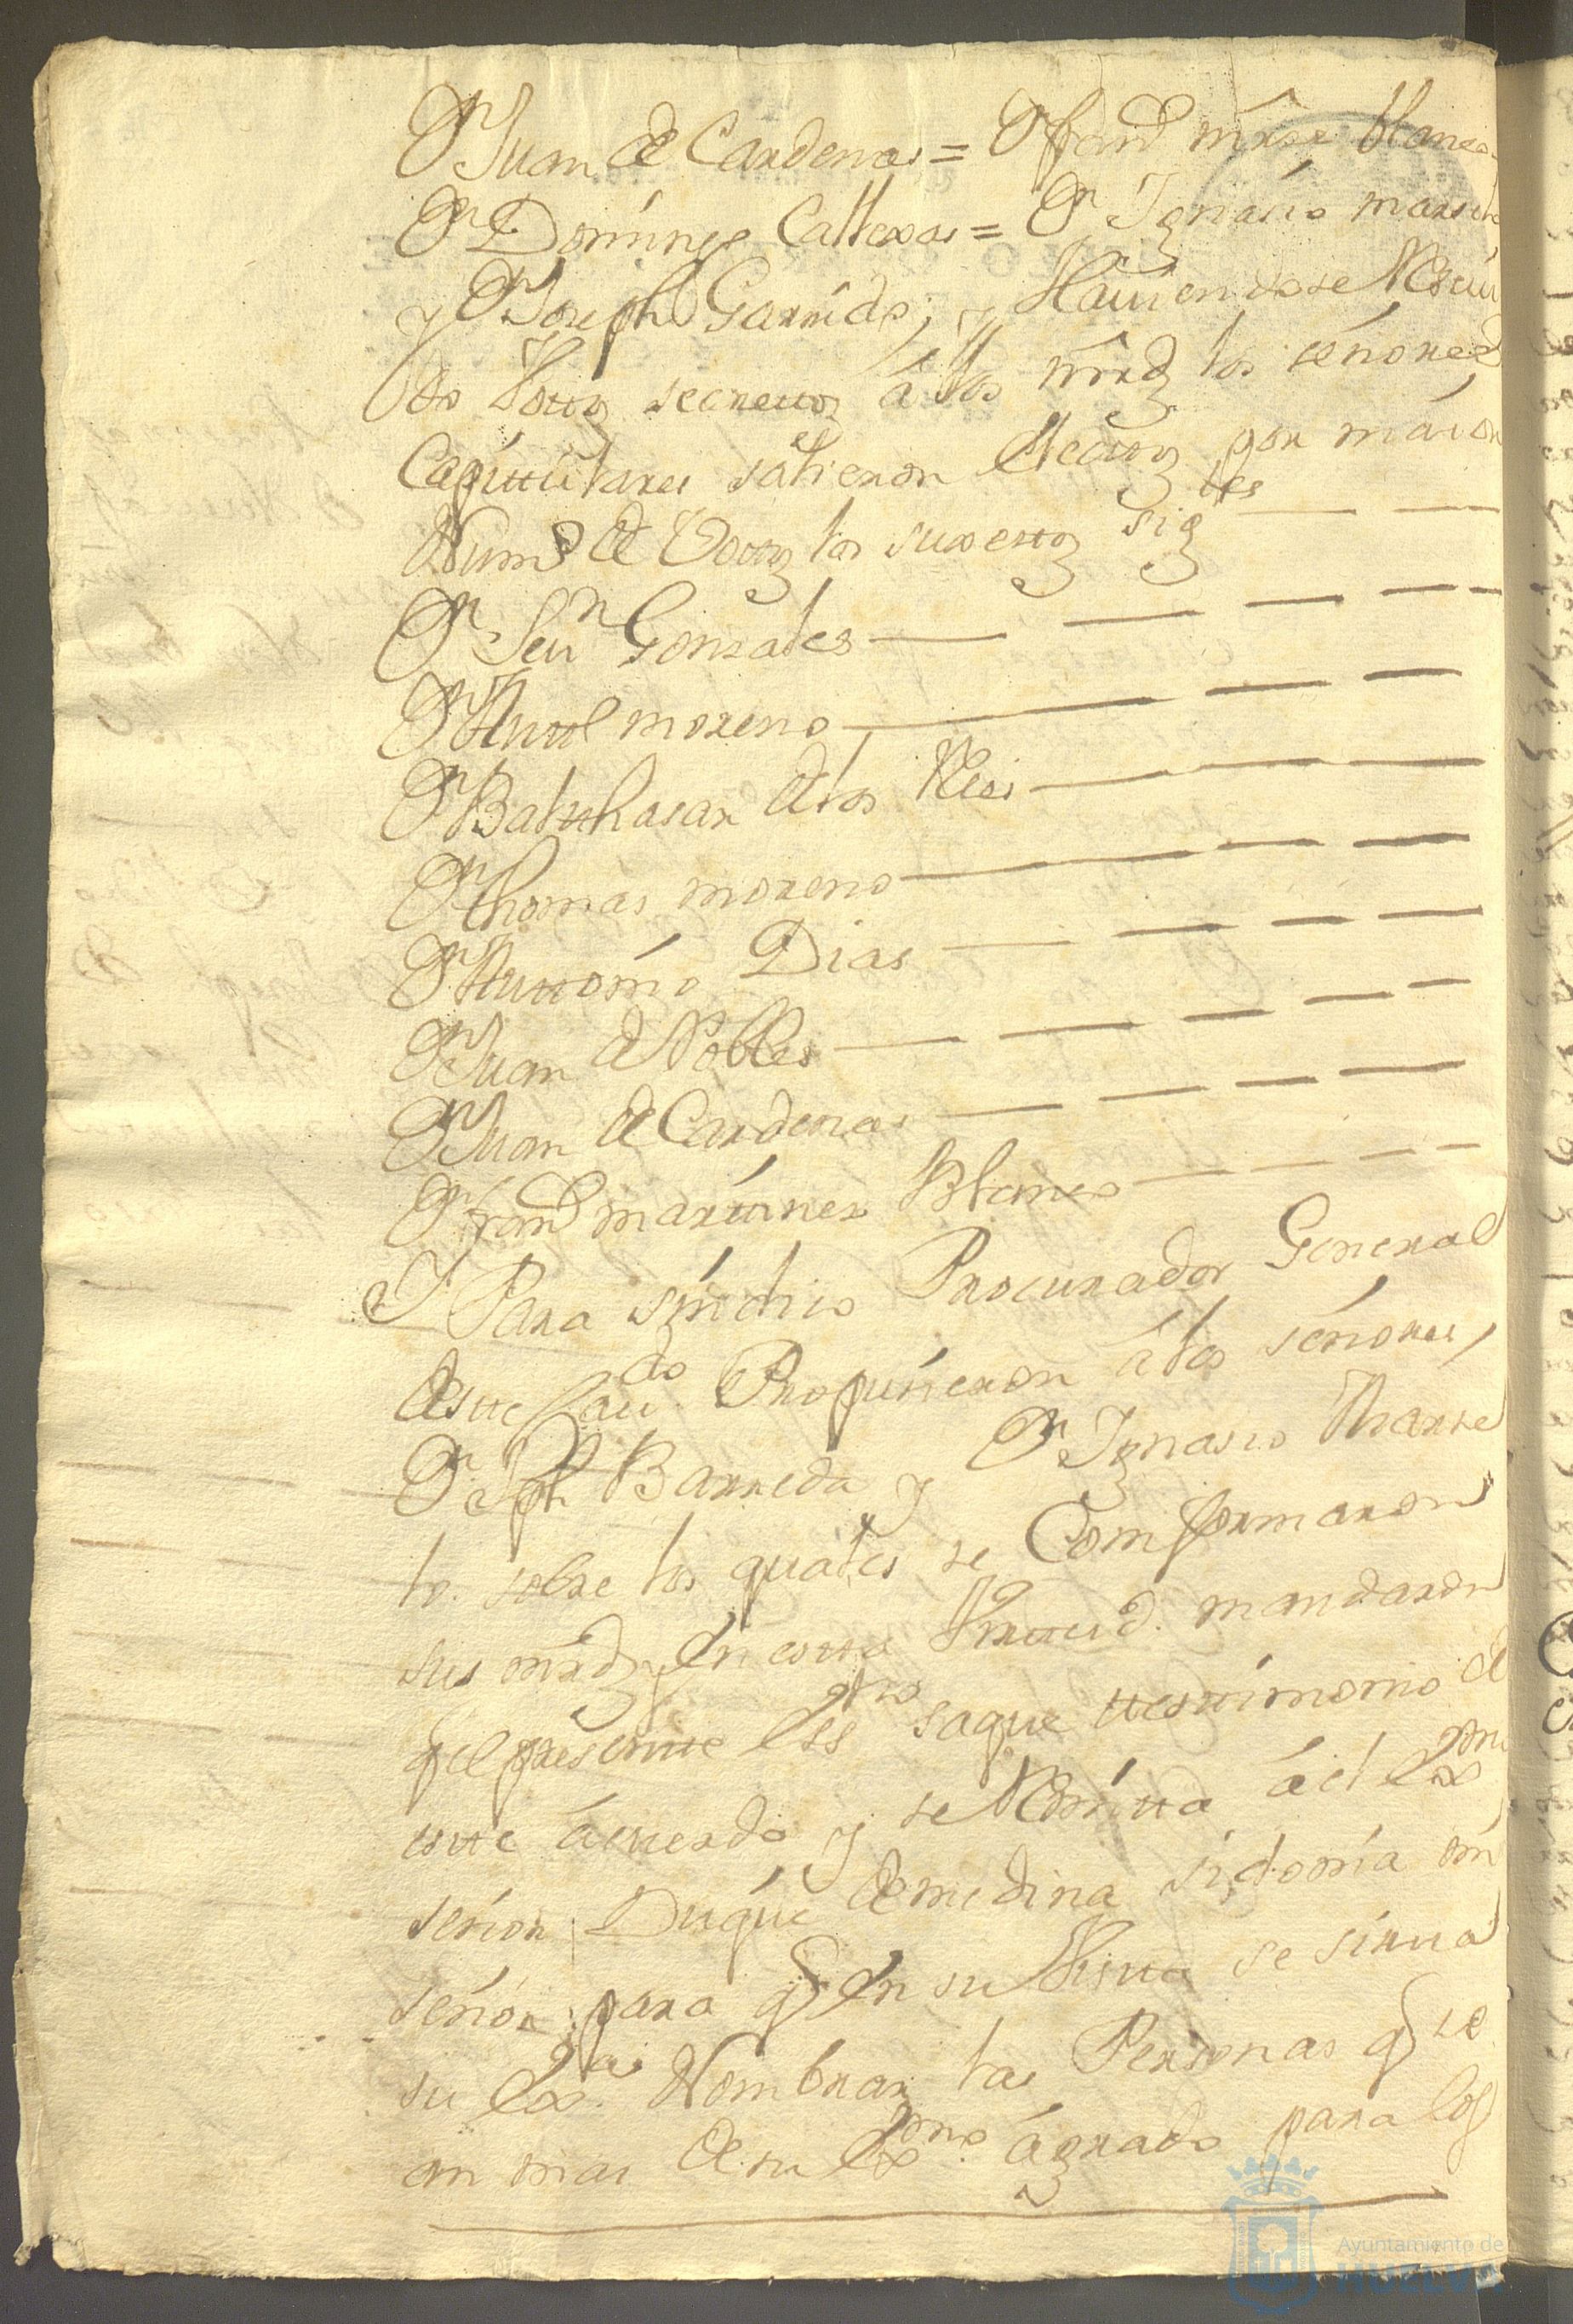 Dn Juan de Cardenas = Dn franco mrnz blanco
Dn Domingo Callexas = Dn Ignasio marselo
y Dn Joseph Garrido; y Haviendose Resevi
do Vottos secrettos á los mrds los señores
Capittulares salieron Electtos por maior
Numo de Vottos los suxettos sigtes
Dn Sevn Gonzales
Dn Anttl moreno
Dn Baltthasar de los Reies
Dn thomas moreno
Dn Anttonio Dias
Dn Juan de Robles
Dn Juan de Cardenas
Dn franco marttines Blanco
Y Para sindico Procurador General
de estte Cavdo Propusieron á los señores,
Dn Jph Barreda y Dn Ignasio Marse
lo. sobre los quales se Comformaron
sus mrds y En estta Virttud. mandaron
q el presentte Essno saque ttesttimonio de
estte ácuerdo, y se Remitta á el Exmo
señor Duque de medina sidonia mi
señor para q En su Vistta se sirva
su Exa. Nombrar las Personas q se
an mas de su Exmo. ágrado para los
Ayuntamiento de
HUELVA